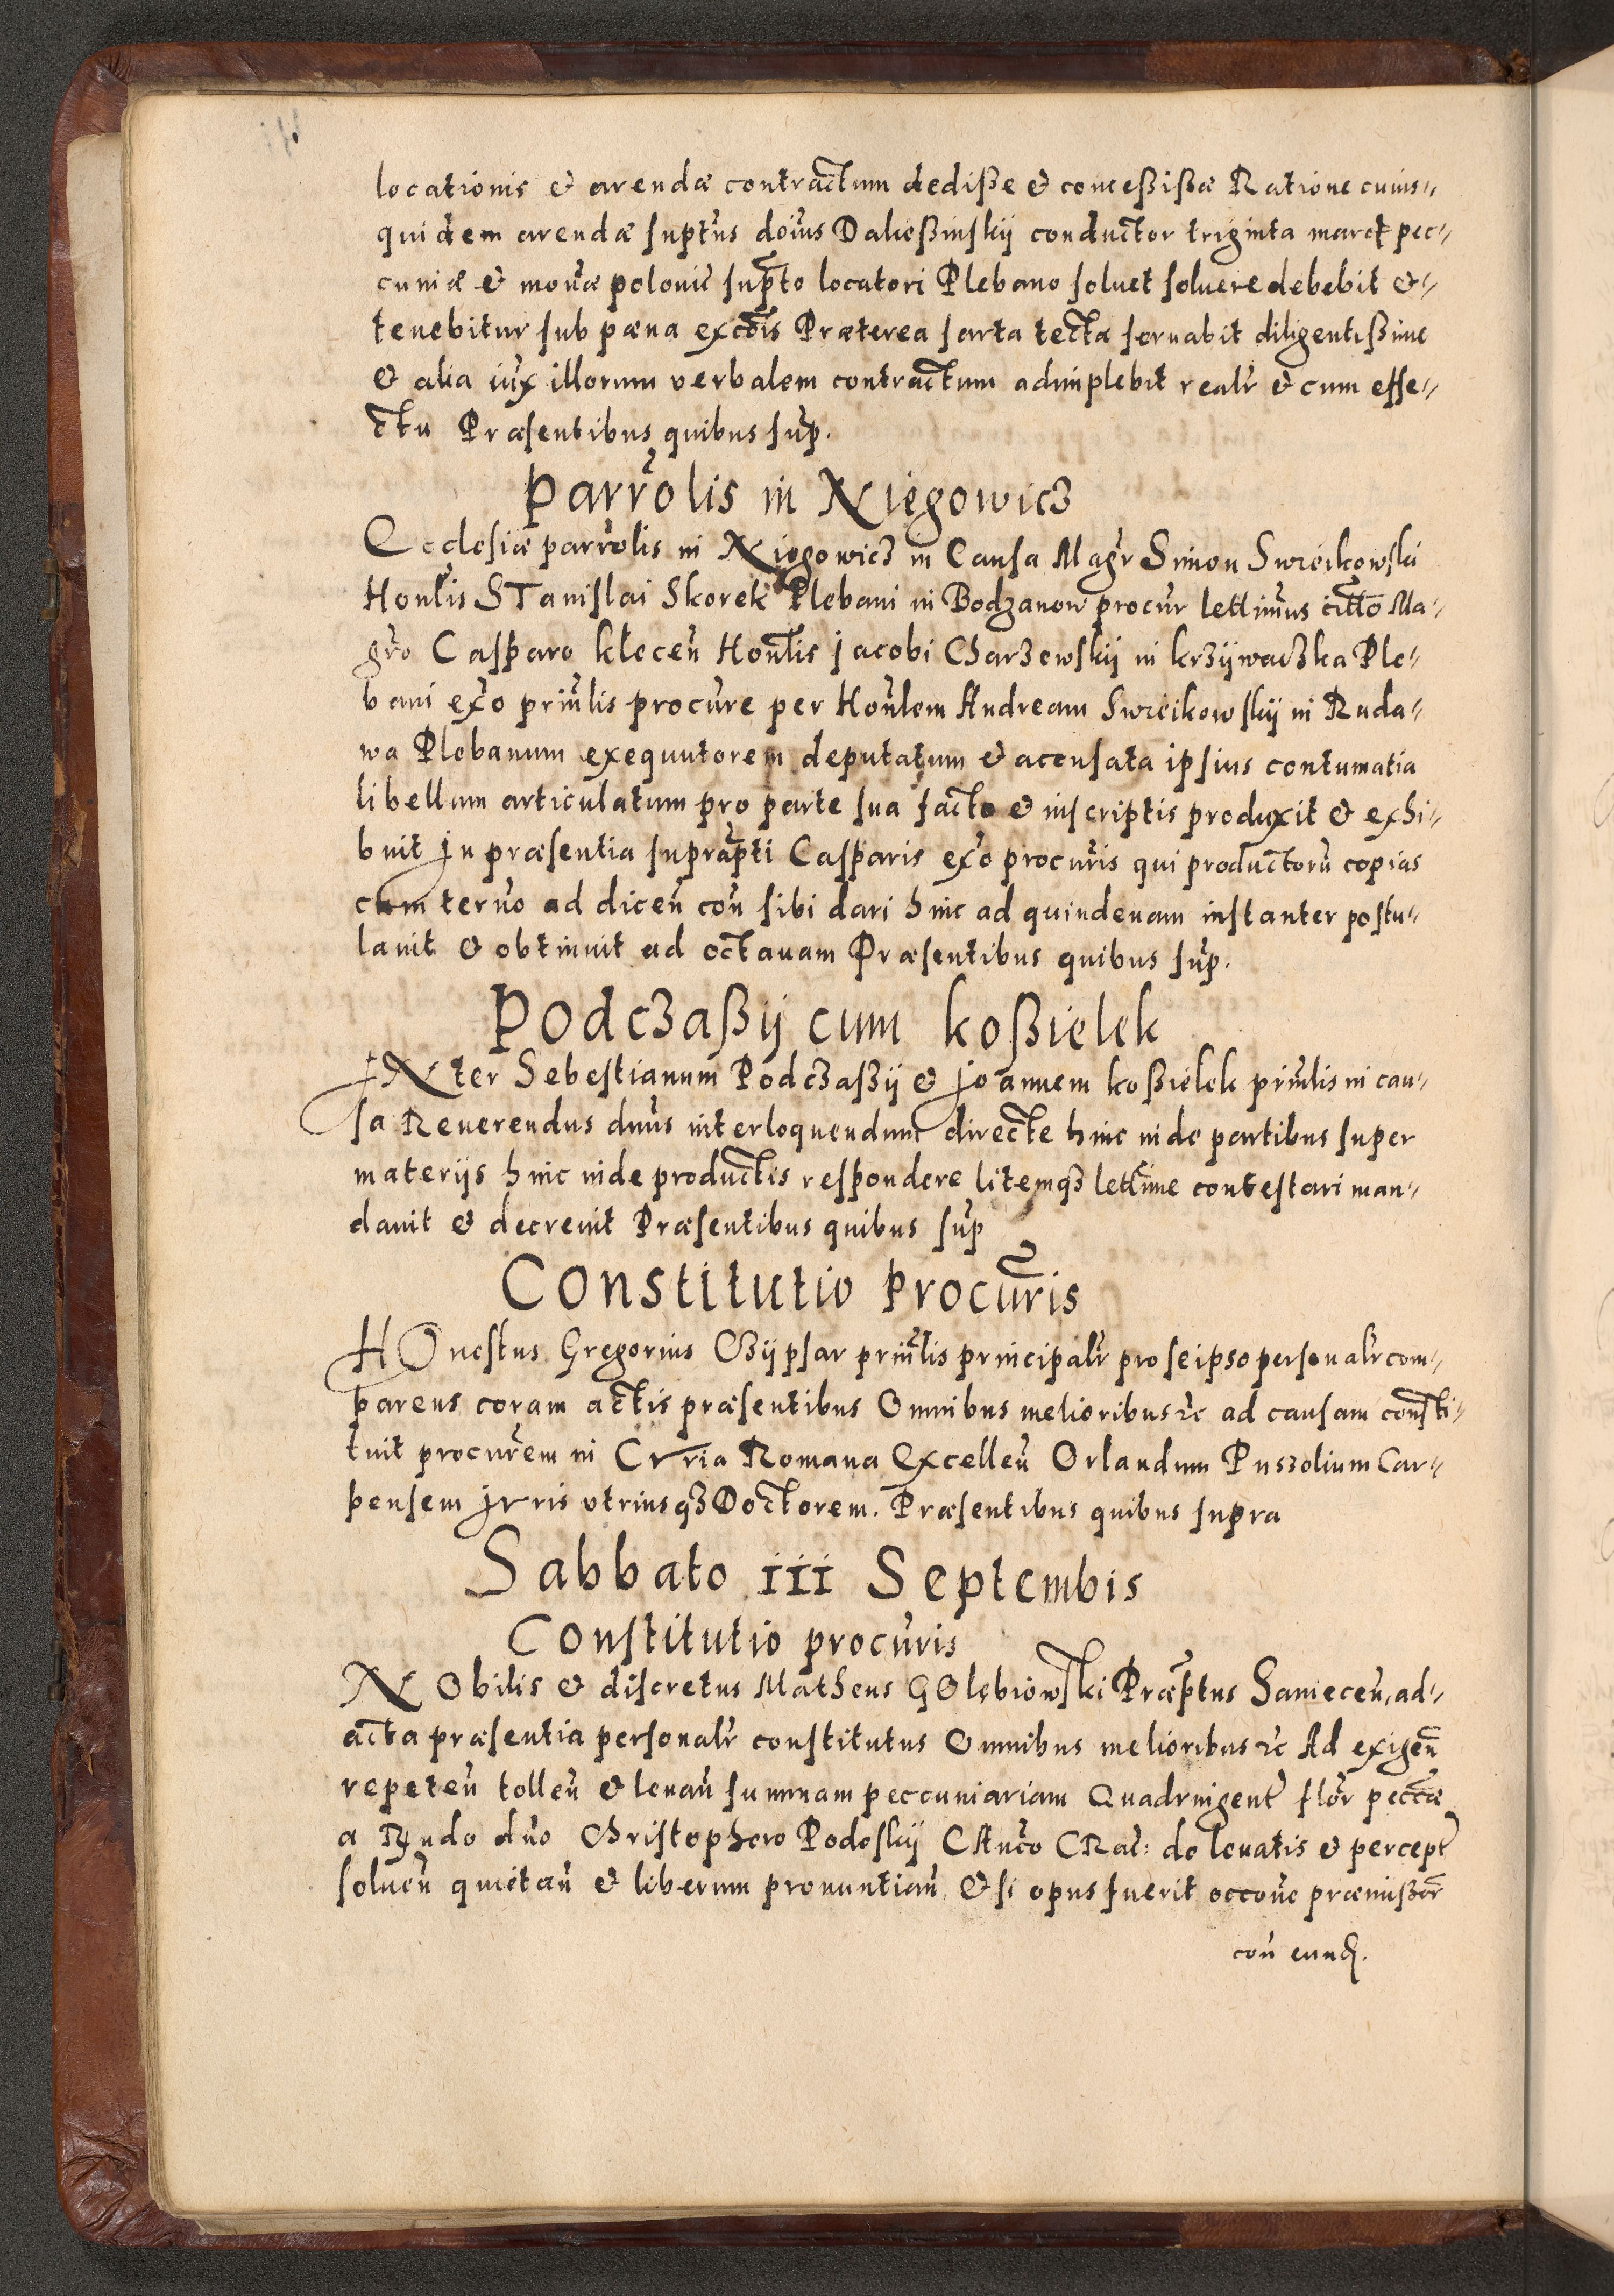 locationis & arendæ contractum dediße & conceßißæ Ratione cuius-
quidem arendæ suptus doius Daließinskij conductor triginta marcȝ pec-
cuniæ & monæ poloniē suprto locatori Plebano soluet soluere debebit &-
tenebitur sub pæna excōis Præterea sarta tecta seruabit diligentißime
& alia iux illorum verbalem contractum adimplebit realr & cum effe-
ctu Præsentibus quibus sup.
Parrolis in Niegowicz
Ecclesiæ parrolis in Niegowicz in Causa Magr Simon Swieikowski
Honlis STanislai Skorek Plebani in Bodzanow procur lettimus citto Ma-
gro Casparo kłecen Honlis Jacobi Charzowskij in krzijwaczka Ple-
bani exo prinlis procure per Honlem Andream Swieikowskij in Ruda-
wa Plebanum exequutorem deputatum & accusata ipsius contumatia
libellum articulatum pro parte sua facto & inscriptis produxit & exhi-
buit Jn præsentia suprapti Casparis exo procuris qui productorū copias
cum terno ad dicen con sibi dari hinc ad quindenam instanter postu-
lauit & obtinuit ad octauam Præsentibus quibus sup.
Podczaßij cum koßielek
JNter Sebestianum Podczaßij & Joannem koßielek prinlis in cau-
sa Reuerendus dnus interloquendum directe hinc inde partibus super
materijs hinc inde productis respondere litemqȝ lettime contestari man-
dauit & decreuit Præsentibus quibus sup
Constitutio Procuris
HOnestus Gregorius Ozijpsar prinlis principalr pro se ipso personalr com-
parens coram actis præsentibus Omnibus melioribus ꝛc ad causam consti-
tuit procurem in CVria Romana Excellen Orlandum Puszolium Car-
pensem JVris vtriusqȝ Doctorem. Præsentibus quibus supra
Sabbato iii Septembis
Constitutio procuris
NObilis & discretus Matheus GOlębiowski Præptus Samecen, ad-
acta præsentia personalr constitutus Omnibus melioribus ꝛc Ad exigen
repeten tollen & leuan summam peccuniariam Quadringent flor peccæ
a Rndo dno Christophoro Podoskij CAnco CRac: de leuatis & percept
soluen quietan & liberum pronuntian & si opus fuerit occone præmißor
con eund.